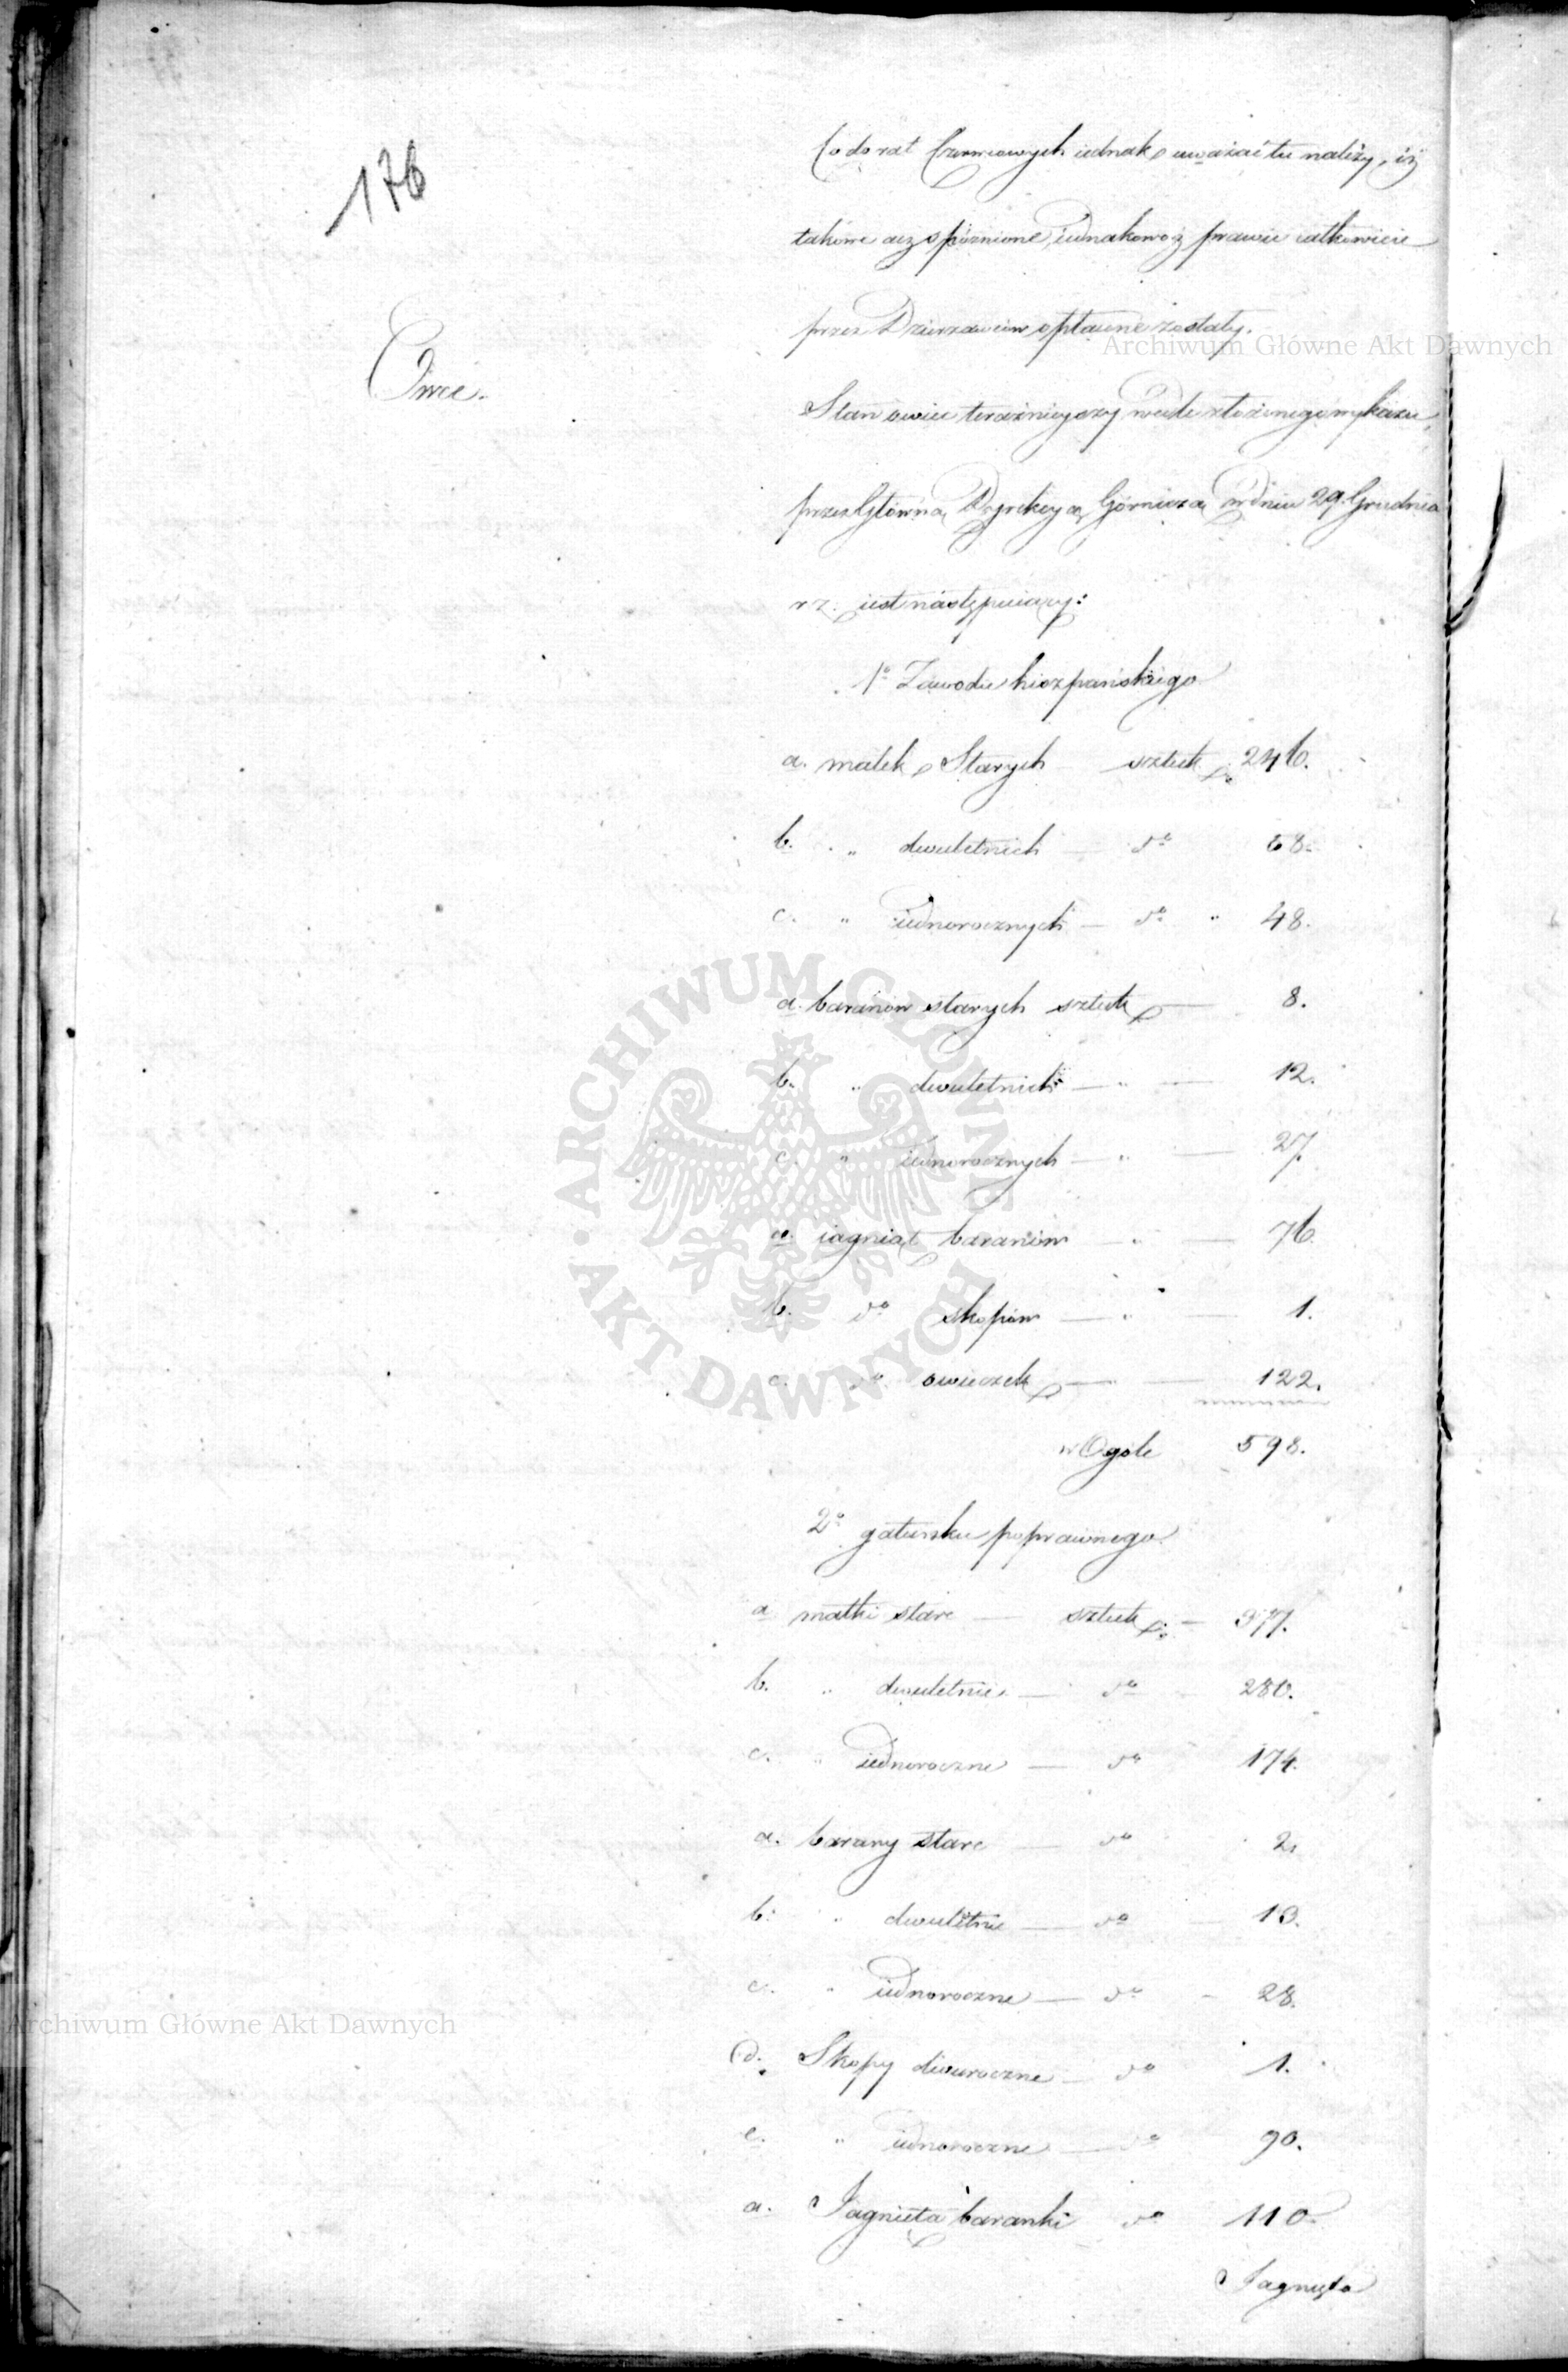 176
Co do rat Czerwcowych iednak uważać tu należy, iż
takowe acz spóźnione, iednakowoż prawie całkowicie
przez Dzierżawców opłacone zostały.
Archiwum Główne Akt Dawnych
Owce.
Stan owiec teraźnieyszy wedle złożonego wykazu,
przez Główną Dyrekcyą Górniczą w dniu 29. Grudnia
r z. iest następuiący:
1o Zawodu hiszpańskiego
a. matek Starych sztuk 246.
b. " dwuletnich — do 58.
c. " iednorocznych — do " 48.
a. baranów starych sztuk — 8.
b. " dwuletnich — " — 12.
c. " iednorocznych — " — 27.
a. iagniąt baranów — " — 76.
b. do skopów — " — 1.
c. do owieczek — " — 122.
w Ogóle 598.
2o gatunku poprawnego
a matki stare — sztuk — 377.
b. " dwuletnie — do — 280.
c. " iednoroczne — do 174.
a. barany stare — do 2.
b. " dwuletnie — do — 13.
c. " iednoroczne — do - 28.
Archiwum Główne Akt Dawnych
d. Skopy dwuroczne — do 1.
e. " iednoroczne — do 90.
a. Iagnięta baranki do 110.
Iagnięta
ARCHIWUM GŁÓWNE AKT DAWNYCH